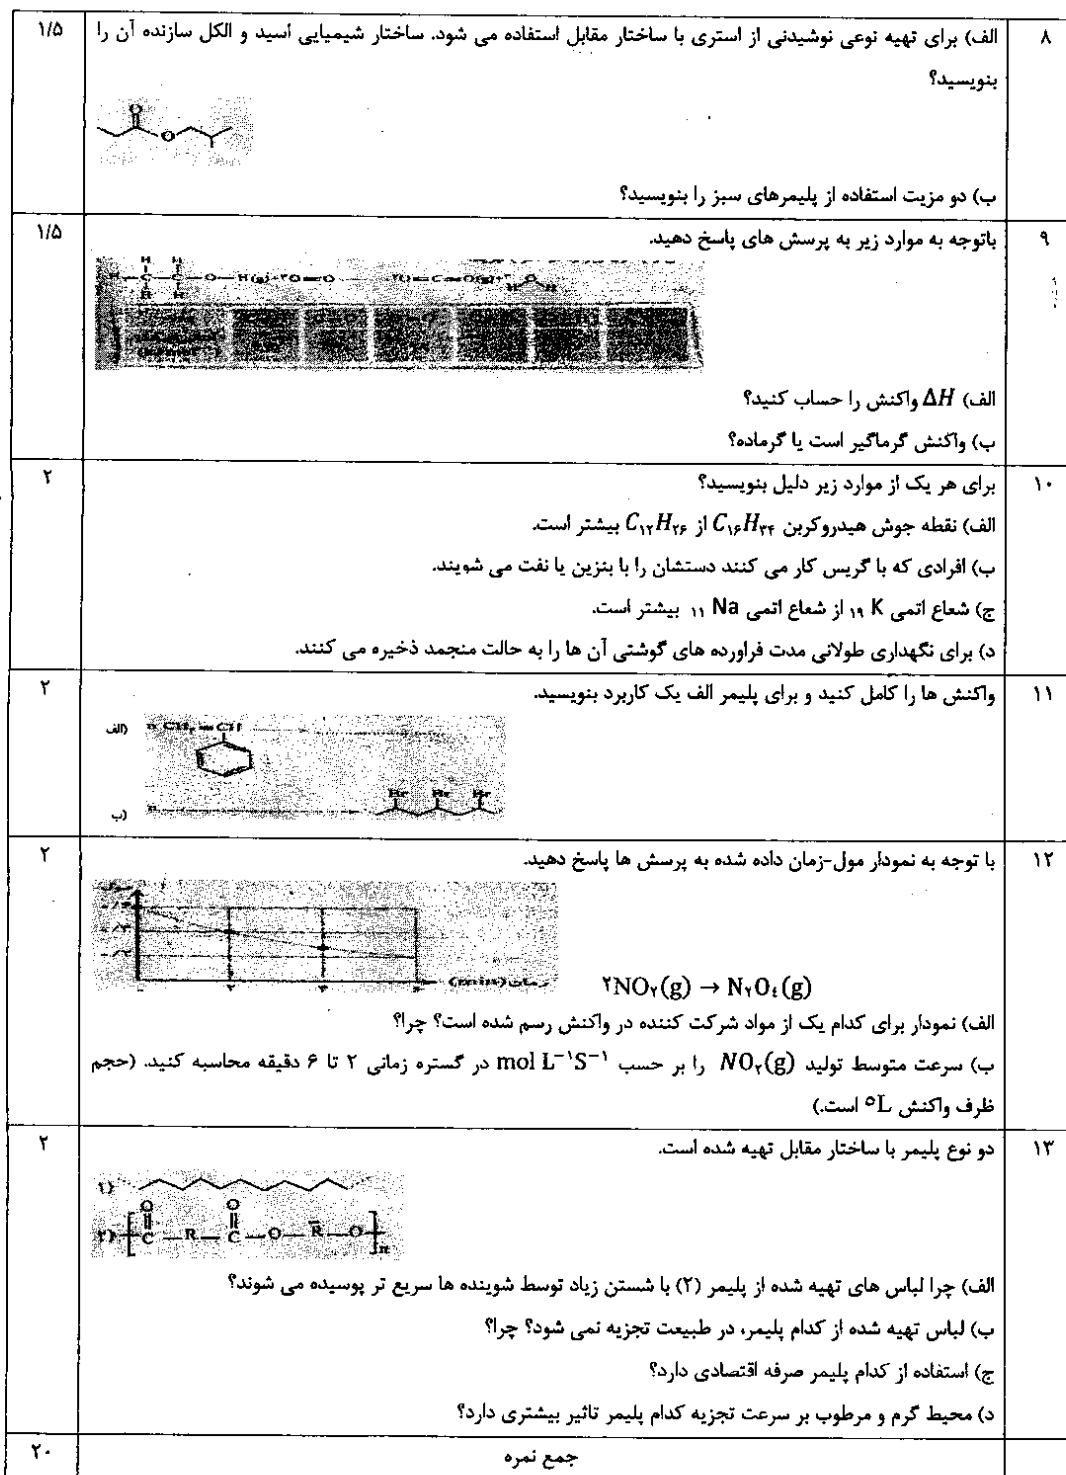 ۸
الف) برای تهیه نوعی نوشیدنی از استری با ساختار مقابل استفاده می شود. ساختار شیمیایی اسید و الکل سازنده آن را
بنویسید؟
۱/۵
O
O
ب) دو مزیت استفاده از پلیمرهای سبز را بنویسید؟
۹
باتوجه به موارد زیر به پرسش های پاسخ دهید.
۱/۵
الف) ΔH واکنش را حساب کنید؟
ب) واکنش گرماگیر است یا گرماده؟
۱۰
برای هر یک از موارد زیر دلیل بنویسید؟
۲
الف) نقطه جوش هیدروکربن C۱۶H۳۴ از C۱۲H۲۶ بیشتر است.
ب) افرادی که با گریس کار می کنند دستشان را با بنزین یا نفت می شویند.
ج) شعاع اتمی ۱۹ K از شعاع اتمی ۱۱ Na بیشتر است.
د) برای نگهداری طولانی مدت فراورده های گوشتی آن ها را به حالت منجمد ذخیره می کنند.
۱۱
واکنش ها را کامل کنید و برای پلیمر الف یک کاربرد بنویسید.
۲
الف) n CH۲ = CH
ب) n
Br Br Br
۱۲
با توجه به نمودار مول-زمان داده شده به پرسش ها پاسخ دهید.
۲
زمان(min)
۲NO۲(g) → N۲O٤(g)
الف) نمودار برای کدام یک از مواد شرکت کننده در واکنش رسم شده است؟ چرا؟
ب) سرعت متوسط تولید NO۲(g) را بر حسب mol L⁻¹S⁻¹ در گستره زمانی ۲ تا ۶ دقیقه محاسبه کنید. (حجم
ظرف واکنش ۵L است.)
۱۳
دو نوع پلیمر با ساختار مقابل تهیه شده است.
۲
۱)
O O
۲) [C — R — C — O — R — O]n
الف) چرا لباس های تهیه شده از پلیمر (۲) با شستن زیاد توسط شوینده ها سریع تر پوسیده می شوند؟
ب) لباس تهیه شده از کدام پلیمر، در طبیعت تجزیه نمی شود؟ چرا؟
ج) استفاده از کدام پلیمر صرفه اقتصادی دارد؟
د) محیط گرم و مرطوب بر سرعت تجزیه کدام پلیمر تاثیر بیشتری دارد؟
جمع نمره
۲۰